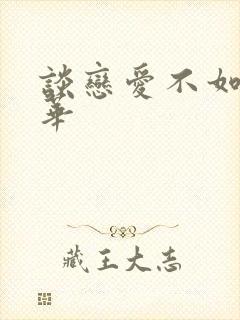 談戀愛不如
華
藏王大志